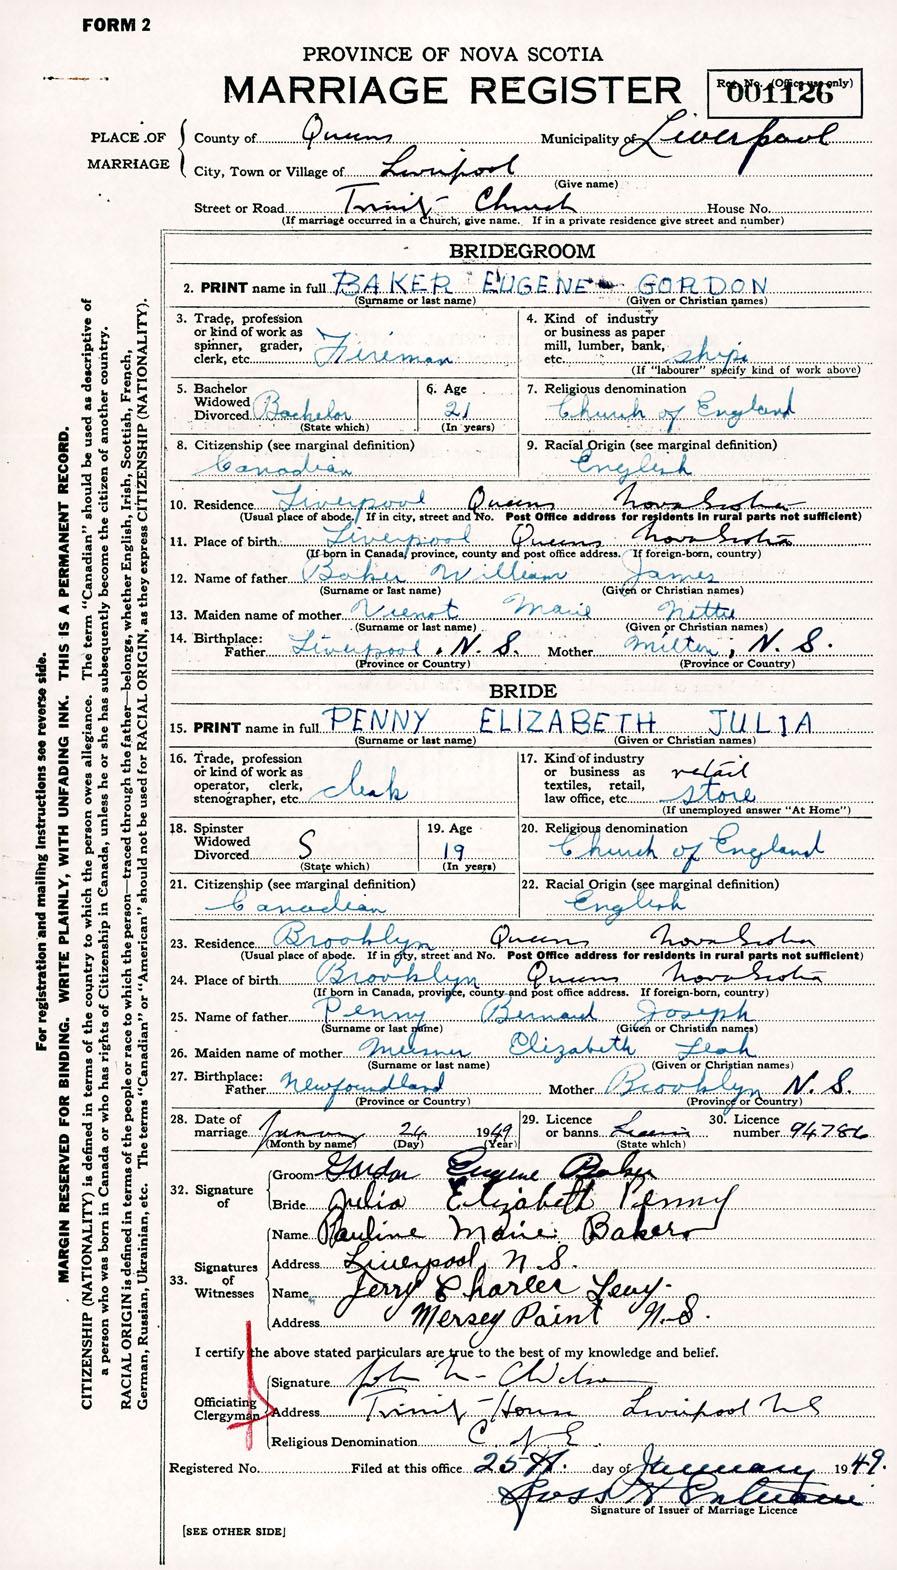 FORM 2
PROVINCE OF NOVA SCOTIA
MARRIAGE REGISTER
Reg. No. (Office use only)
001126
PLACE OF MARRIAGE
County of Queens Municipality of Liverpool
City, Town or Village of Liverpool
(Give name)
Street or Road Trinity Church House No.
(If marriage occurred in a Church, give name. If in a private residence give street and number)
BRIDEGROOM
2. PRINT name in full BAKER EUGENE GORDON
(Surname or last name) (Given or Christian names)
3. Trade, profession or kind of work as spinner, grader, clerk, etc. Fireman
4. Kind of industry or business as paper mill, lumber, bank, etc. ship
(If "labourer" specify kind of work above)
5. Bachelor Widowed Divorced Bachelor
(State which)
6. Age 21
(In years)
7. Religious denomination
Church of England
8. Citizenship (see marginal definition)
Canadian
9. Racial Origin (see marginal definition)
English
10. Residence Liverpool Queens Nova Scotia
(Usual place of abode. If in city, street and No. Post Office address for residents in rural parts not sufficient)
11. Place of birth Liverpool Queens Nova Scotia
(If born in Canada, province, county and post office address. If foreign-born, country)
12. Name of father Baker William James
(Surname or last name) (Given or Christian names)
13. Maiden name of mother Vienot Marie Nettie
(Surname or last name) (Given or Christian names)
14. Birthplace: Father Liverpool, N. S. Mother Milton, N. S.
(Province or Country) (Province or Country)
BRIDE
15. PRINT name in full PENNY ELIZABETH JULIA
(Surname or last name) (Given or Christian names)
16. Trade, profession or kind of work as operator, clerk, stenographer, etc. clerk
17. Kind of industry or business as textiles, retail, law office, etc. retail store
(If unemployed answer "At Home")
18. Spinster Widowed Divorced S
(State which)
19. Age 19
(In years)
20. Religious denomination
Church of England
21. Citizenship (see marginal definition)
Canadian
22. Racial Origin (see marginal definition)
English
23. Residence Brooklyn Queens Nova Scotia
(Usual place of abode. If in city, street and No. Post Office address for residents in rural parts not sufficient)
24. Place of birth Brooklyn Queens Nova Scotia
(If born in Canada, province, county and post office address. If foreign-born, country)
25. Name of father Penny Bernard Joseph
(Surname or last name) (Given or Christian names)
26. Maiden name of mother Meisner Elizabeth Leah
(Surname or last name) (Given or Christian names)
27. Birthplace: Father Newfoundland Mother Brooklyn N. S.
(Province or Country) (Province or Country)
28. Date of marriage January 24 1949
(Month by name) (Day) (Year)
29. Licence or banns Licence
(State which)
30. Licence number 94786
32. Signature of
Groom Gordon Eugene Baker
Bride Julia Elizabeth Penny
33. Signatures of Witnesses
Name Pauline Marie Baker
Address Liverpool, N. S.
Name Jerry Charles Levy
Address Mersey Point N. S.
I certify the above stated particulars are true to the best of my knowledge and belief.
Officiating Clergyman
Signature John
Address Trinity House Liverpool N S
Religious Denomination C of E
Registered No. Filed at this office 25th. day of January 1949.
Ross
Signature of Issuer of Marriage Licence
[SEE OTHER SIDE]
For registration and mailing instructions see reverse side.
MARGIN RESERVED FOR BINDING. WRITE PLAINLY, WITH UNFADING INK. THIS IS A PERMANENT RECORD.
CITIZENSHIP (NATIONALITY) is defined in terms of the country to which the person owes allegiance. The term "Canadian" should be used as descriptive of
a person who was born in Canada or who has rights of Citizenship in Canada, unless he or she has subsequently become the citizen of another country.
RACIAL ORIGIN is defined in terms of the people or race to which the person—traced through the father—belongs, whether English, Irish, Scottish, French,
German, Russian, Ukrainian, etc. The terms "Canadian" or "American" should not be used for RACIAL ORIGIN, as they express CITIZENSHIP (NATIONALITY).